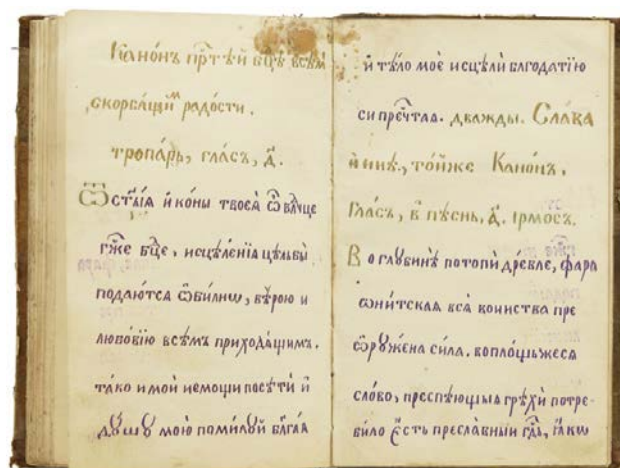 Канѡнъ прⷭ҇тѣй бцⷣѣ всѣм
скорбѧщиⷨ радости.
тропа́рь, гла́съ, д҃.
Ѿ ст҃ы́ѧ и҆ко́ны твоеѧ̀ ѽ влⷣчце
гж҃е бцⷣе, исцѣле́нїѧ цѣльбы̀
подаю́тсѧ ѡ҆би́лнѡ, вѣ́рою и
любо́вїю всѣ́мъ приходѧ́щимъ.
та́ко и мой немощи посѣтѝ и҆
дꙋ́шꙋ мою̀ поми́лꙋй бл҃га́ѧ
и҆ тѣ́ло моѐ исцѣлѝ блгода́тїю
си пречⷭ҇таѧ. дважды. Сла́ва
и҆ ны́нѣ, то́йже Кано́нъ,
Гла́съ, в҃ пѣ́снь, а҃. ірмо́съ.
В о глꙋбинѣ̀ потопѝ дре́вле, фара
ѡни́тскаѧ всѧ̀ во́инства пре
ѡ҆рꙋ́жена си́ла. вопло́щьжесѧ
сло́во, преспѣ́ющыѧ грѣхѝ потре-
би́ло є҆́сть пресла́вныи гдⷭ҇ь, ꙗ҆́кѡ